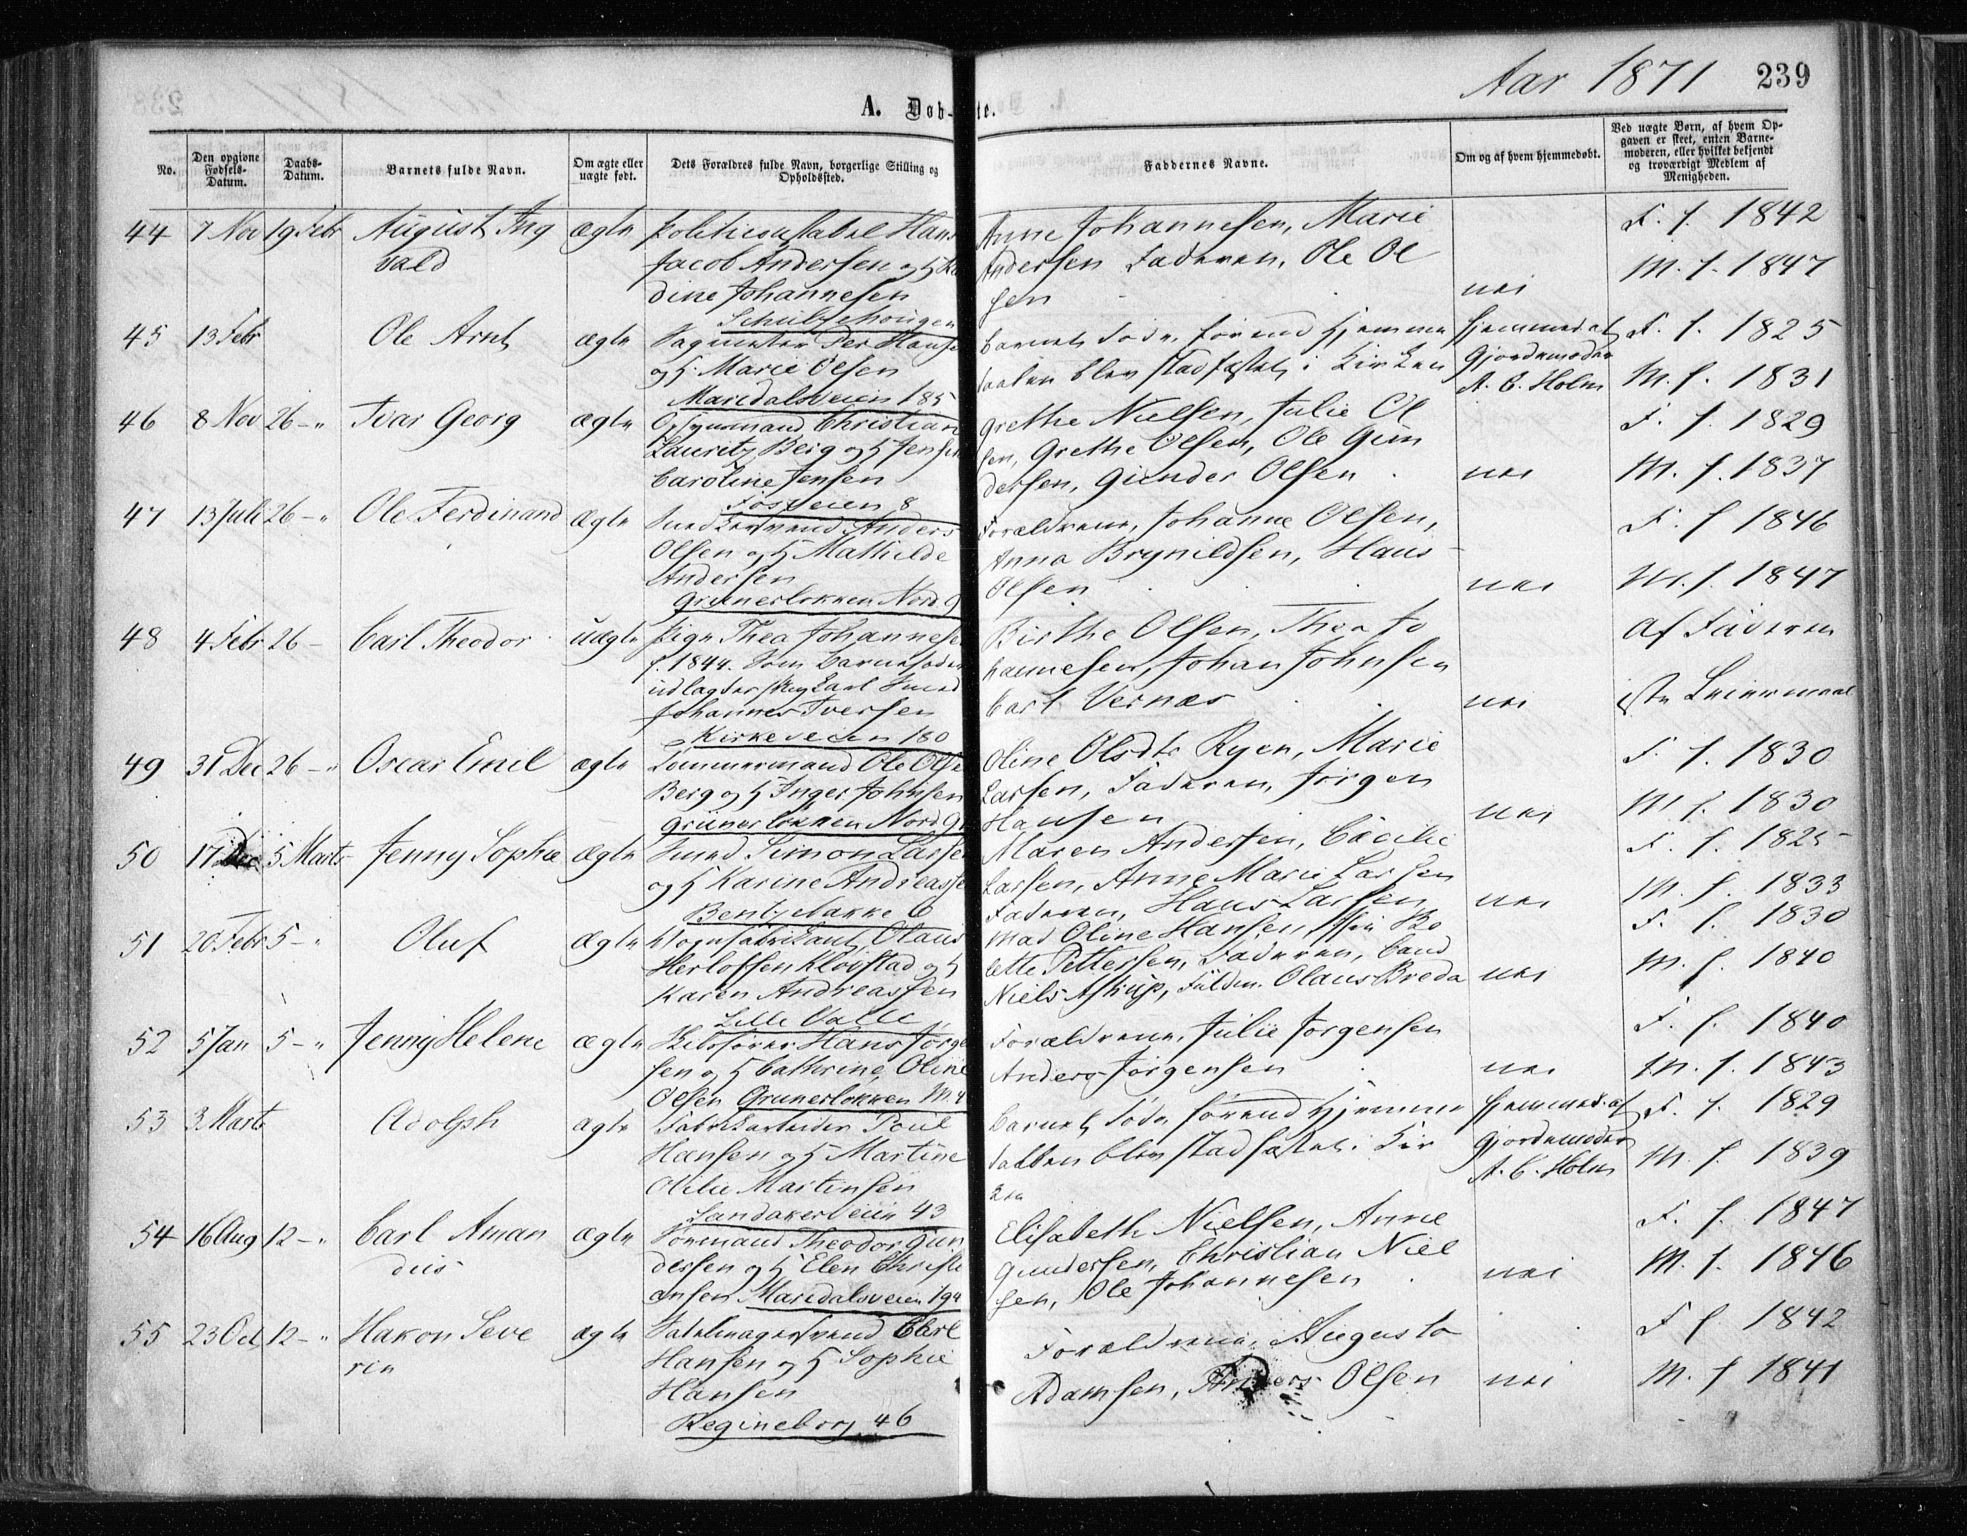 Aar 1871 239
A. Døb- te.
No.
Den opgivne Fødsels-Datum.
Daabs-Datum.
Barnets fulde Navn.
Om ægte eller uægte født.
Dets Forældres fulde Navn, borgerlige Stilling og Opholdssted.
Faddernes Navne.
Om og af hvem hjemmedøbt.
Ved uægte Børn, af hvem Opgaven er skeet, enten Barnemoderen, eller hvilket bekjendt og troværdigt Medlem af Menigheden.
44 7 Nov 19 Febr August Ing ægte Politiconstabel Hans Anne Johannesen, Marie F. f. 1842
vald Jacob Andersen og H Andersen Faderen, Ole Ol M. f. 1847
dine Johannesen sen nei
45 13 Febr Ole Arnt ægte Per Hanse Barnet døde førend Hjemme Hjemmed. af F. f. 1825
og H. Marie Olsen daaben blev stadfæstet i Kirken Gjordemoder
Maridalsveien 185 A. C. Holm M. f. 1831
46 8 Nov 26 - " Ivar Georg ægte Christian Grethe Nielsen, Julie Ol F. f. 1829
Lauritz Berg og H Jensen sen, Grethe Olsen, Ole Gun
Caroline Jensen dersen, Gunder Olsen nei M. f. 1837
Fosveien 8
47 13 Juli 26 - " Ole Ferdinand ægte Smedsvend Anders Forældrene, Johanne Olsen, F. f. 1846
Olsen og H Mathilde Anna Brynildsen, Hans
Andersen Olsen nei M. f. 1847
Grünerløkken Nord. 9
48 4 Febr 26 - Carl Theodor uægte Pige Thea Johannese Birthe Olsen, Thea Jo Af Faderen
f. 1844. Som Barnefader hannesen, Johan Johnsen
udlagt Carl Smed Carl Vernæs nei 1ste Leiermaal
Johannes Iversen
Kirkeveien 180
49 31 Dec 26 - " Oscar Emil ægte Tømmermand Ole Olse Oline Olsdtr Ryen, Marie F. f. 1830
Berg og H Inger Johnsen Larsen, Faderen, Jørgen
Grünerløkken Nord 9 Hansen nei M f. 1830
50 17 Dec 5 Marts Jenny Sophie ægte Smed Simon Larse Maren Andersen, Cæcilie F. f. 1825
og H Karine Andreasse Larsen, Anne Marie Larsen
Bentzebakke 6 Faderen, Hans Larsen nei M. f. 1833
51 20 Febr 5 - " Oluf ægte Vognfabrikant Olaus Mad Oline Hansen, Bo F. f. 1830
Herlofsen Kløvstad og H lette Pettersen, Faderen, Cand
Karen Andreassen Niels Astrup, Fuldm. Olaus Breda nei M. f. 1840
Lille Valle
52 5 Jan 5 - " Jenny Helene ægte Hans Jørge Forældrene, Julie Jørgensen F. f. 1840
sen og H Cathrine Oline Anders Jørgensen nei M. f. 1843
Olsen Grünerløkken M. 4
53 3 Marts Adolph ægte Fabrikarbeider Poul Barnet døde førend Hjemme Hjemmed. af F. f. 1829
Hansen og H Martine daaben blev stadfæstet i Kir Gjordemoder
Martinsen ken A. C. Holm M. f. 1839
Sandakerveien 43
54 16 Aug 12 - " Carl Aman ægte Formand Theodor Gun Elisabeth Nielsen, Anne F. f. 1847
dus dersen og H Elen Christi Gundersen, Christian Niel
ansen Maridalsveien 194 sen, Ole Johannesen nei M. f. 1846
55 23 Oct 12 - " Hakon Seve ægte Sadelmagersvend Carl Forældrene, Augusta F f. 1842
rin Hansen og H Sophie
Hansen Adamsen, Anders Olsen nei M. f 1841
Regineborg 46